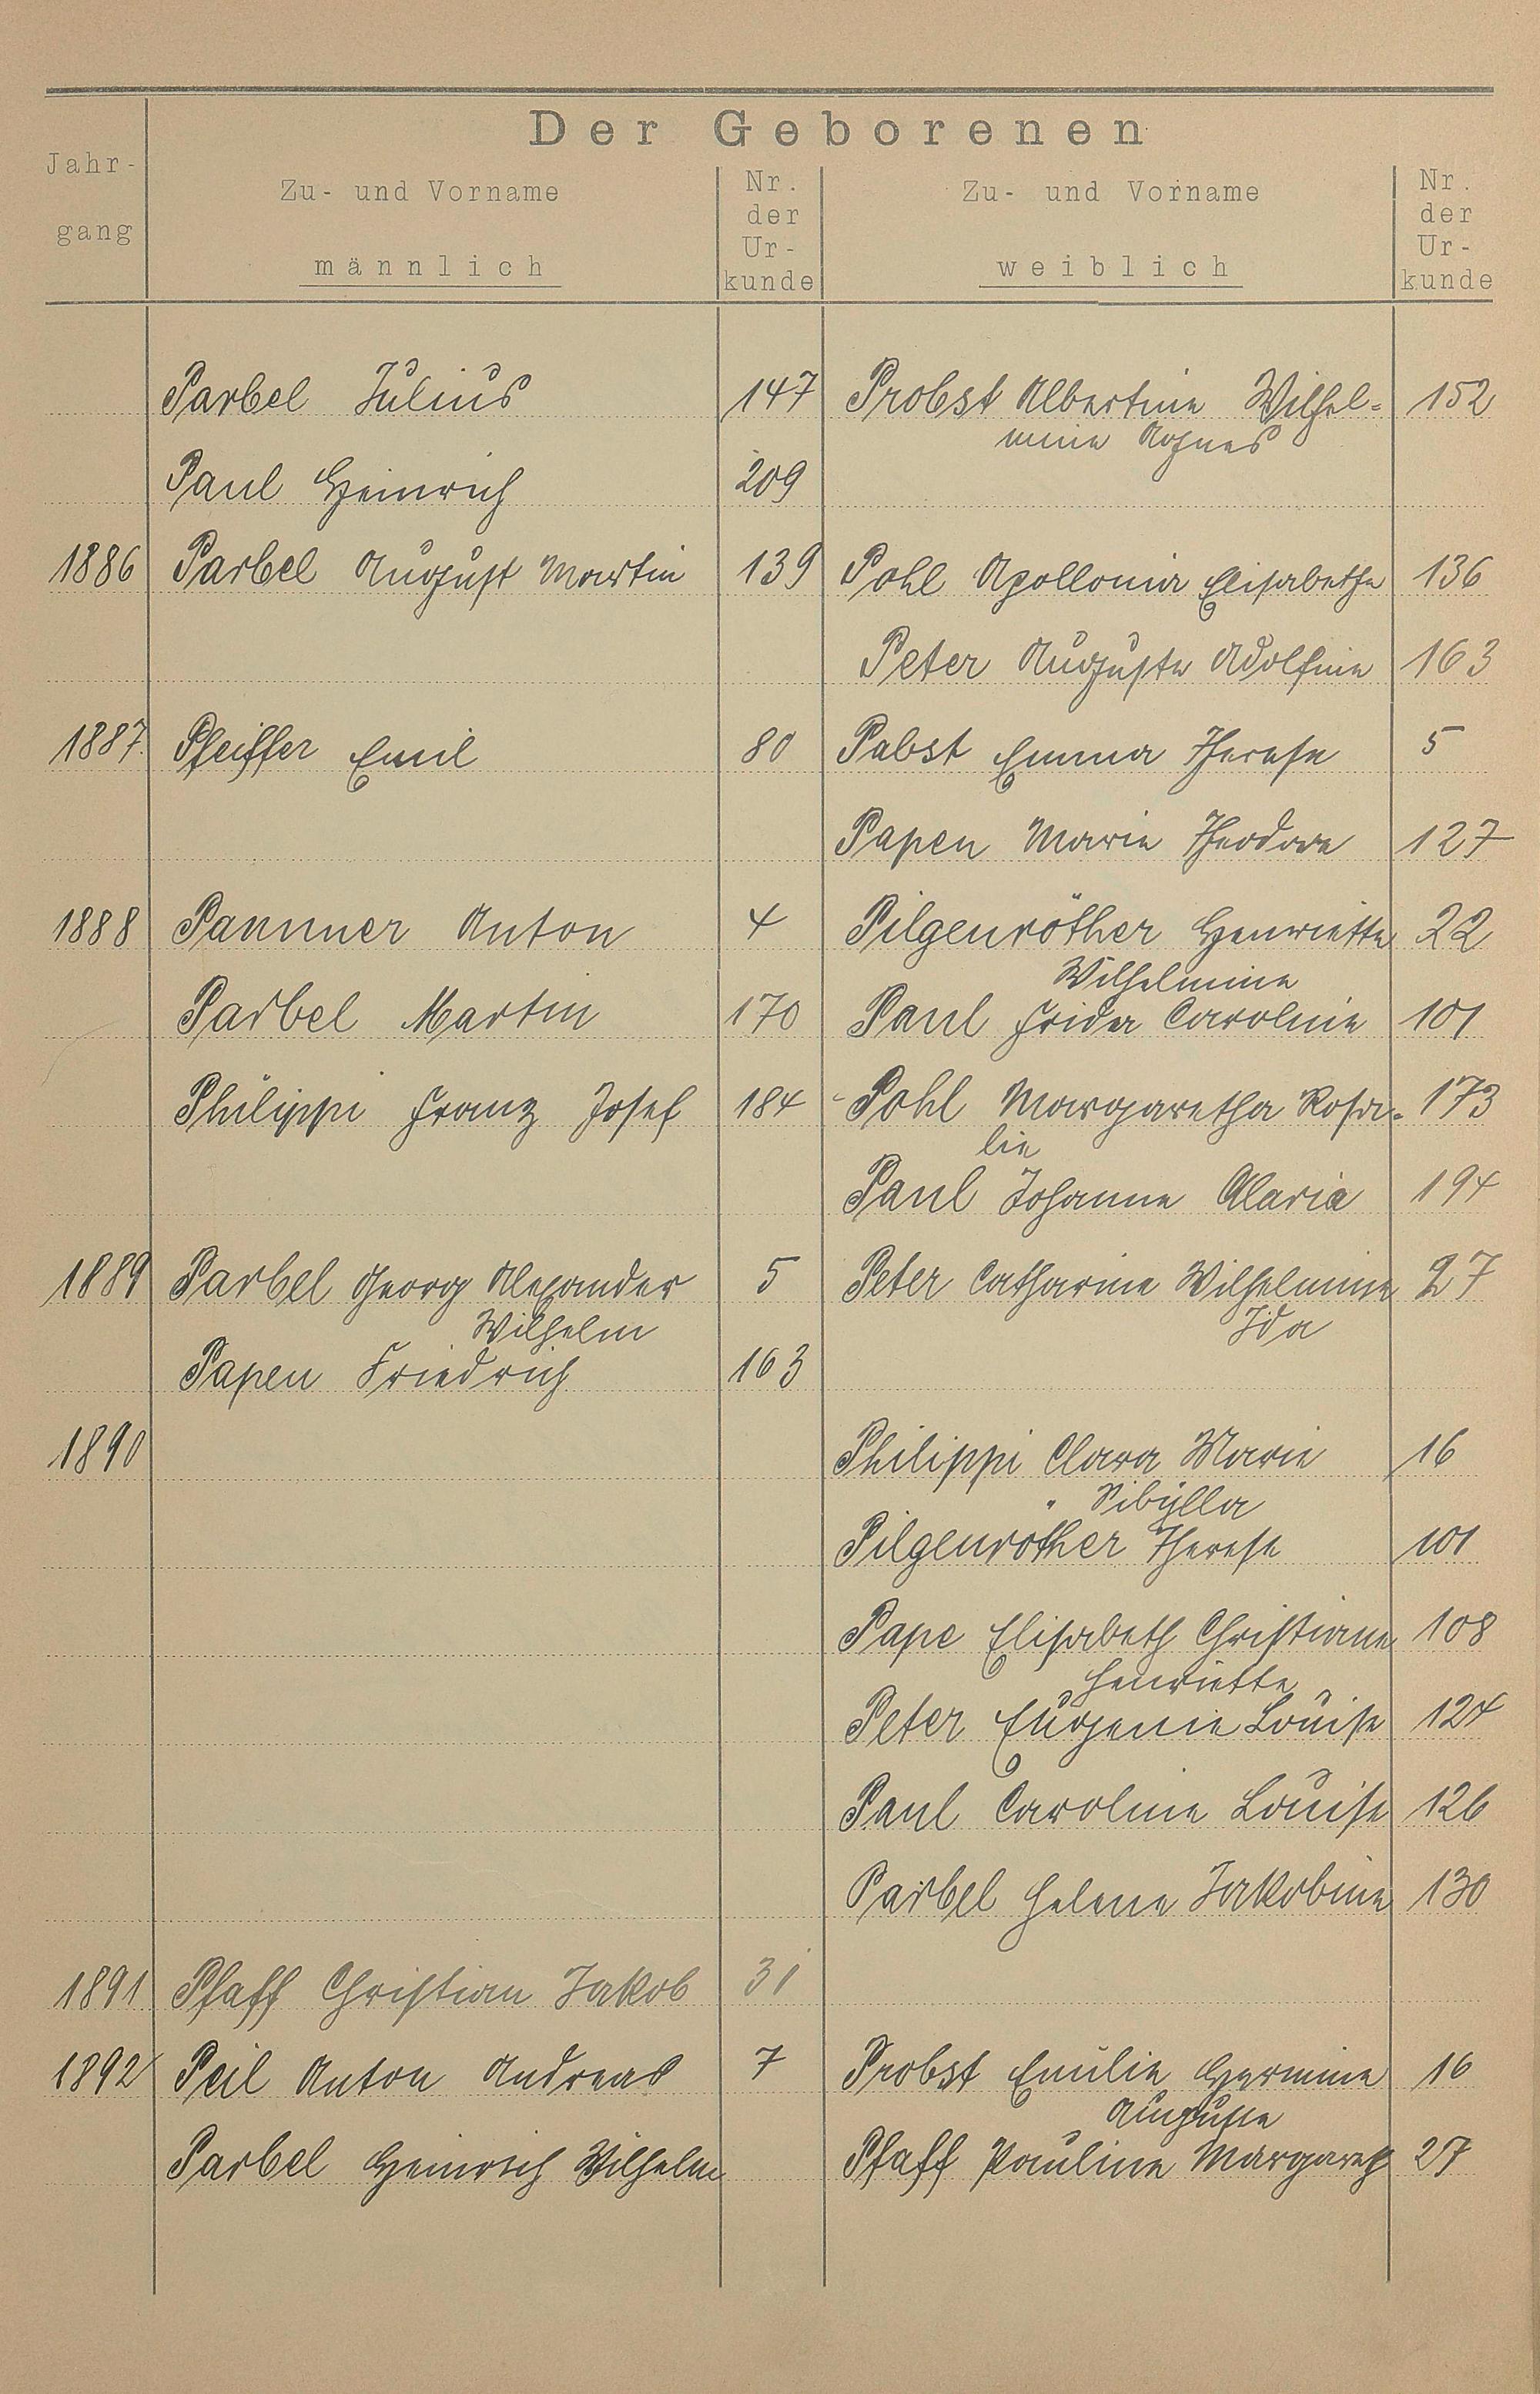 Der Geborenen
Jahr-
gang
Zu- und Vorname
männlich
Nr.
der
Ur-
kunde
Zu- und Vorname
weiblich
Nr.
der
Ur-
kunde
Parbel Julius 147 Probst Albertine Wilhel= 152
mine Agnes
Paul Heinrich 209
1886 Parbel August Martin 139 Pohl Apollonia Elisabetha 136
Peter Auguste Adolfine 163
1887. Pfeiffer Emil 80 Pabst Emma Therese 5
Papen Marie Theodora 127
1888 Pammer Anton 4 Pilgenröther Henriette 22
Wilhelmine
Parbel Martin 170 Paul Frida Caroline 101
Philippi Franz Josef 184 Pohl Margaretha Rosa= 173
lie
Paul Johanna Maria 194
1889 Parbel Georg Alexander 5 Peter Catharine Wilhelmine 27
Wilhelm Ida
Papen Friedrich 163
1890 Philippi Clara Marie 16
" Sibylla
Pilgenröther Therese 101
Pape Elisabeth Christiane 108
Henriette
Peter Eugenie Louise 124
Paul Caroline Louise 126
Parbel Helene Jakobine 130
1891 Pfaff Christian Jakob 31
1892 Peil Anton Andreas 7 Probst Emilie Hermine 16
Auguste
Parbel Heinrich Wilhelm Pfaff Pauline Margareth 27